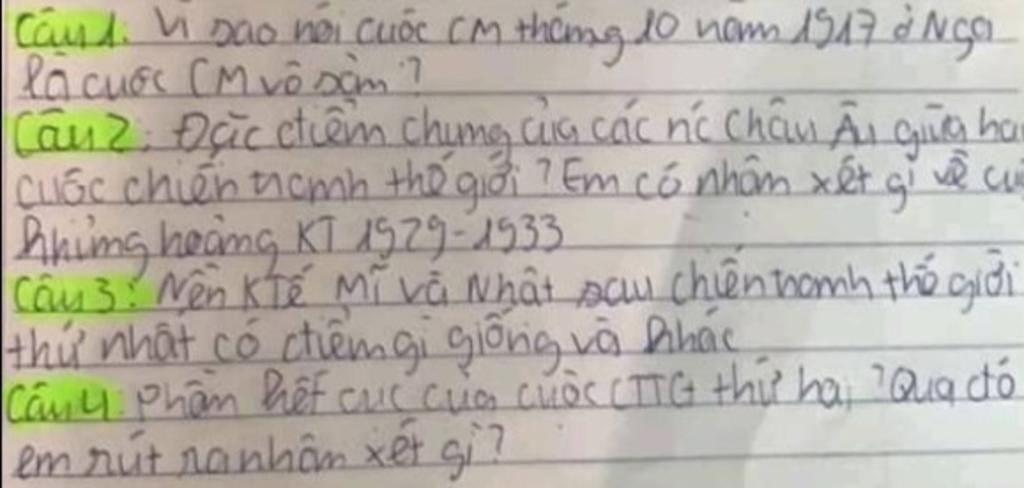 Câu 1: Vì sao nói cuộc CM tháng 10 năm 1917 ở Nga
là cuộc CM vô sản?
Câu 2: Đặc điểm chung của các nc Châu Âu giữa ha
cuộc chiến tranh thế giới? Em có nhận xét gì về cu
khủng hoảng KT 1929-1933
Câu 3: Nền KTế Mĩ và Nhật sau chiến tranh thế giới
thứ nhất có điểm gì giống và khác
Câu 4: phần kết cục của cuộc CTTG thứ hai? Qua đó
em rút ra nhận xét gì?